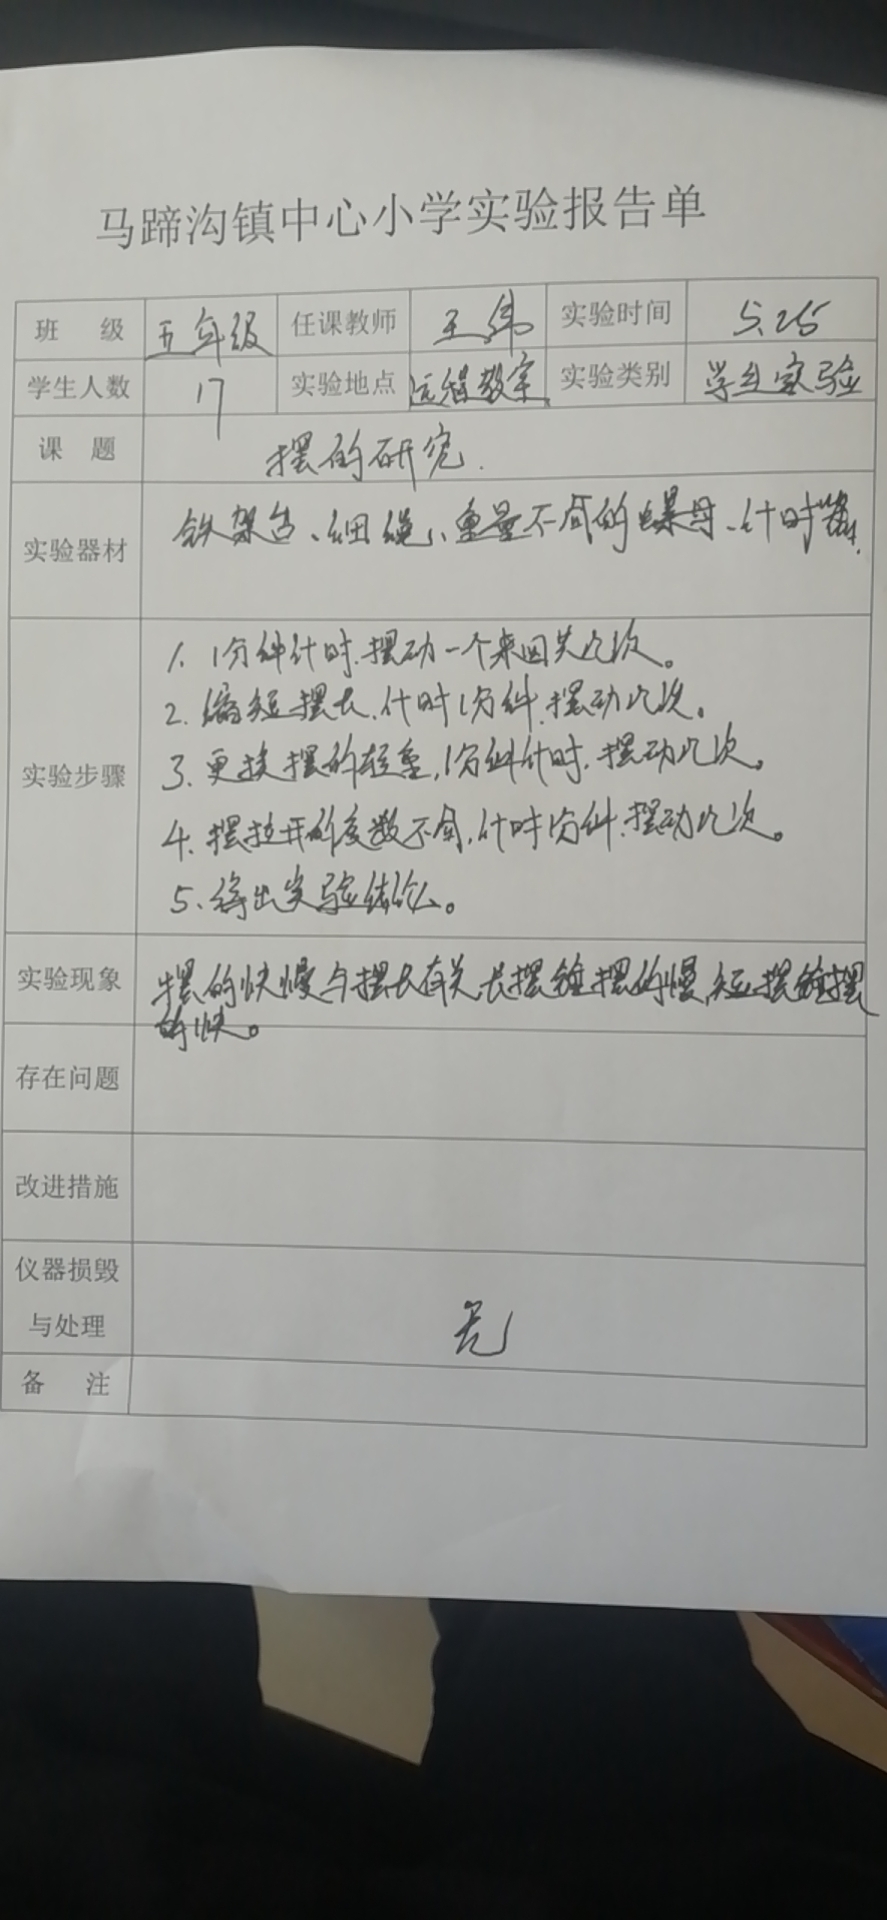 马蹄沟镇中心小学实验报告单
班 级 五年级 任课教师 王伟 实验时间 5.25
学生人数 17 实验地点 远程教室 实验类别 学生实验
课 题 摆的研究.
实验器材 铁架台、细绳、重量不同的螺母、计时器.
实验步骤
1. 1分钟计时.摆动一个来回共几次。
2. 缩短摆长,计时1分钟.摆动几次。
3. 更换摆的轻重,1分钟计时.摆动几次。
4. 摆拉开的度数不同,计时1分钟.摆动几次。
5. 得出实验结论。
实验现象 摆的快慢与摆长有关,长摆 摆的慢,短摆 摆
的快。
存在问题
改进措施
仪器损毁
与处理 无
备 注